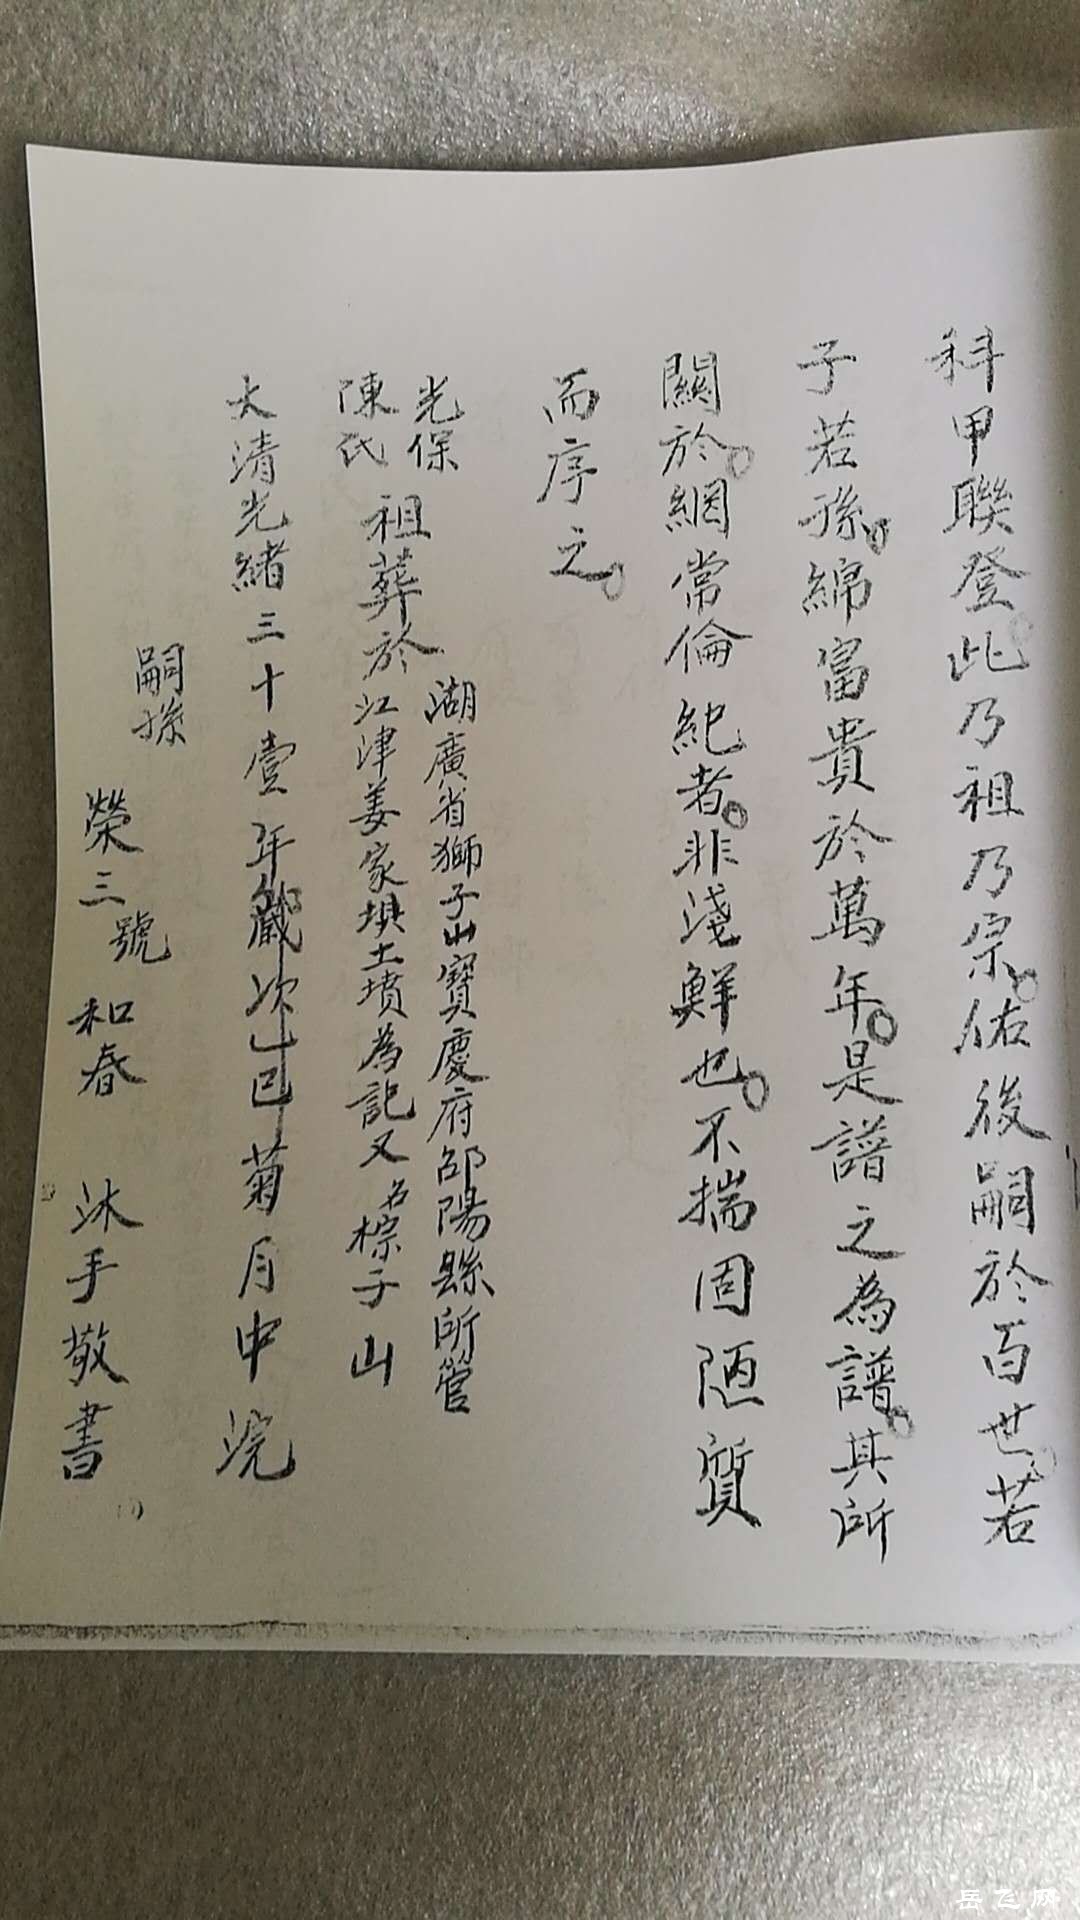 科甲聯登此乃祖乃宗佑後嗣於百世若
子若孫綿富貴於萬年是譜之為譜其所
關於綱常倫紀者非淺鮮也不揣固陋質
而序之
光保
陳氏
祖葬於
湖廣省獅子山寶慶府邵陽縣所管
江津姜家垻土墳為記又名棕子山
大清光緒三十壹年歲次乙巳菊月中浣
嗣孫
榮三號和春 沐手敬書
岳飞网